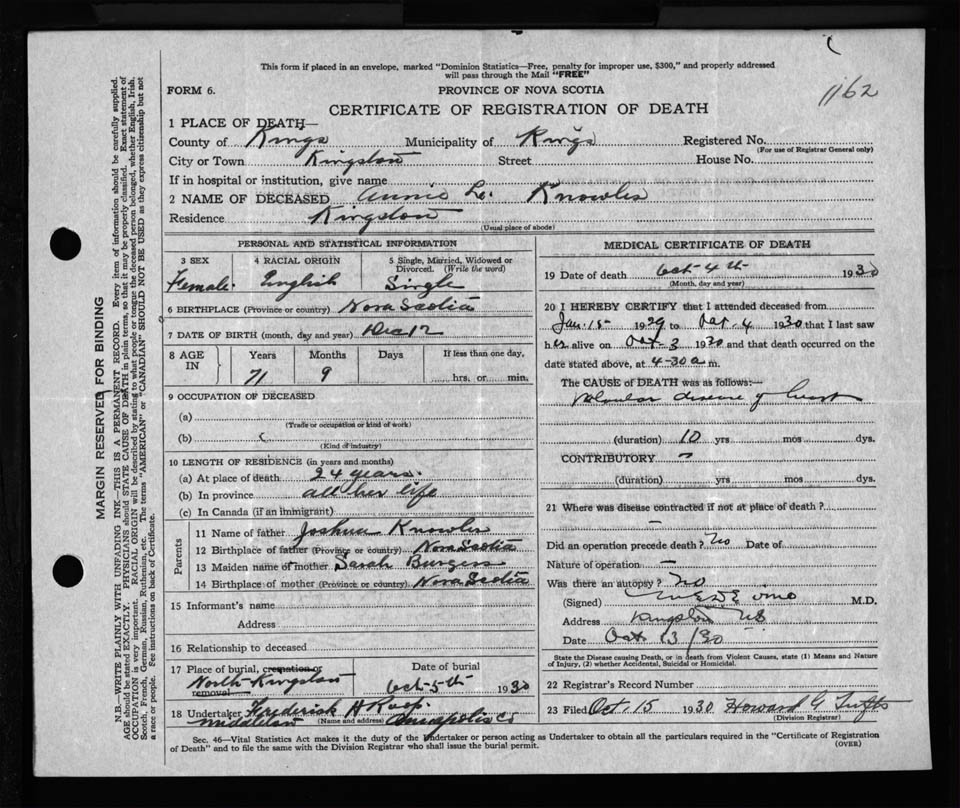 This form if placed in an envelope, marked "Dominion Statistics—Free, penalty for improper use, $300," and properly addressed
will pass through the Mail "FREE"
1162
FORM 6.
PROVINCE OF NOVA SCOTIA
CERTIFICATE OF REGISTRATION OF DEATH
1 PLACE OF DEATH—
County of Kings Municipality of Kings Registered No.
(For use of Registrar General only)
City or Town Kingston Street House No.
If in hospital or institution, give name
2 NAME OF DECEASED Annie L. Knowles
Residence Kingston
(Usual place of abode)
PERSONAL AND STATISTICAL INFORMATION
3 SEX 4 RACIAL ORIGIN 5 Single, Married, Widowed or
Divorced. (Write the word)
Female. English Single
6 BIRTHPLACE (Province or country) Nova Scotia
7 DATE OF BIRTH (month, day and year) Dec 12
8 AGE IN Years Months Days If less than one day,
71 9 hrs. or min.
9 OCCUPATION OF DECEASED
(a)
(Trade or occupation or kind of work)
(b)
(Kind of industry)
10 LENGTH OF RESIDENCE (in years and months)
(a) At place of death 24 years.
(b) In province all her life
(c) In Canada (if an immigrant)
Parents
11 Name of father Joshua Knowles
12 Birthplace of father (Province or country) Nova Scotia
13 Maiden name of mother Sarah Burgess
14 Birthplace of mother (Province or country) Nova Scotia
15 Informant's name
Address
16 Relationship to deceased
17 Place of burial, cremation or Date of burial
North Kingston
removal Oct-5-th 1930
18 Undertaker Frederick H Roop.
Middleton (Name and address) Annapolis Co
MEDICAL CERTIFICATE OF DEATH
19 Date of death Oct-4th 1930
(Month, day and year)
20 I HEREBY CERTIFY that I attended deceased from
Jan. 15- 1929 to Oct. 4 1930 that I last saw
her alive on Oct-3 1930 and that death occurred on the
date stated above, at 4-30 a m.
The CAUSE of DEATH was as follows:—
Valvular disease of heart
(duration) 10 yrs mos dys.
CONTRIBUTORY —
(duration) yrs mos dys.
21 Where was disease contracted if not at place of death?
—
Did an operation precede death? No Date of
Nature of operation —
Was there an autopsy? No
(Signed) M.D.
Address Kingston NS
Date Oct 13/30
State the Disease causing Death, or in death from Violent Causes, state (1) Means and Nature
of Injury, (2) whether Accidental, Suicidal or Homicidal.
22 Registrar's Record Number
23 Filed Oct. 15 1930 Howard G Tufts
(Division Registrar)
Sec. 46—Vital Statistics Act makes it the duty of the Undertaker or person acting as Undertaker to obtain all the particulars required in the "Certificate of Registration
of Death" and to file the same with the Division Registrar who shall issue the burial permit.
(OVER)
MARGIN RESERVED FOR BINDING
N.B.—WRITE PLAINLY WITH UNFADING INK—THIS IS A PERMANENT RECORD. Every item of information should be carefully supplied.
AGE should be stated EXACTLY. PHYSICIANS should STATE CAUSE OF DEATH in plain terms, so that it may be properly classified. Exact statement of
OCCUPATION is very important. RACIAL ORIGIN will be described by stating to what people or tongue the deceased person belonged, whether English, Irish,
Scotch, French, German, Russian, Ruthenian, etc. The terms "AMERICAN" or "CANADIAN" SHOULD NOT BE USED as they express citizenship but not
a race or people. See instructions on back of Certificate.